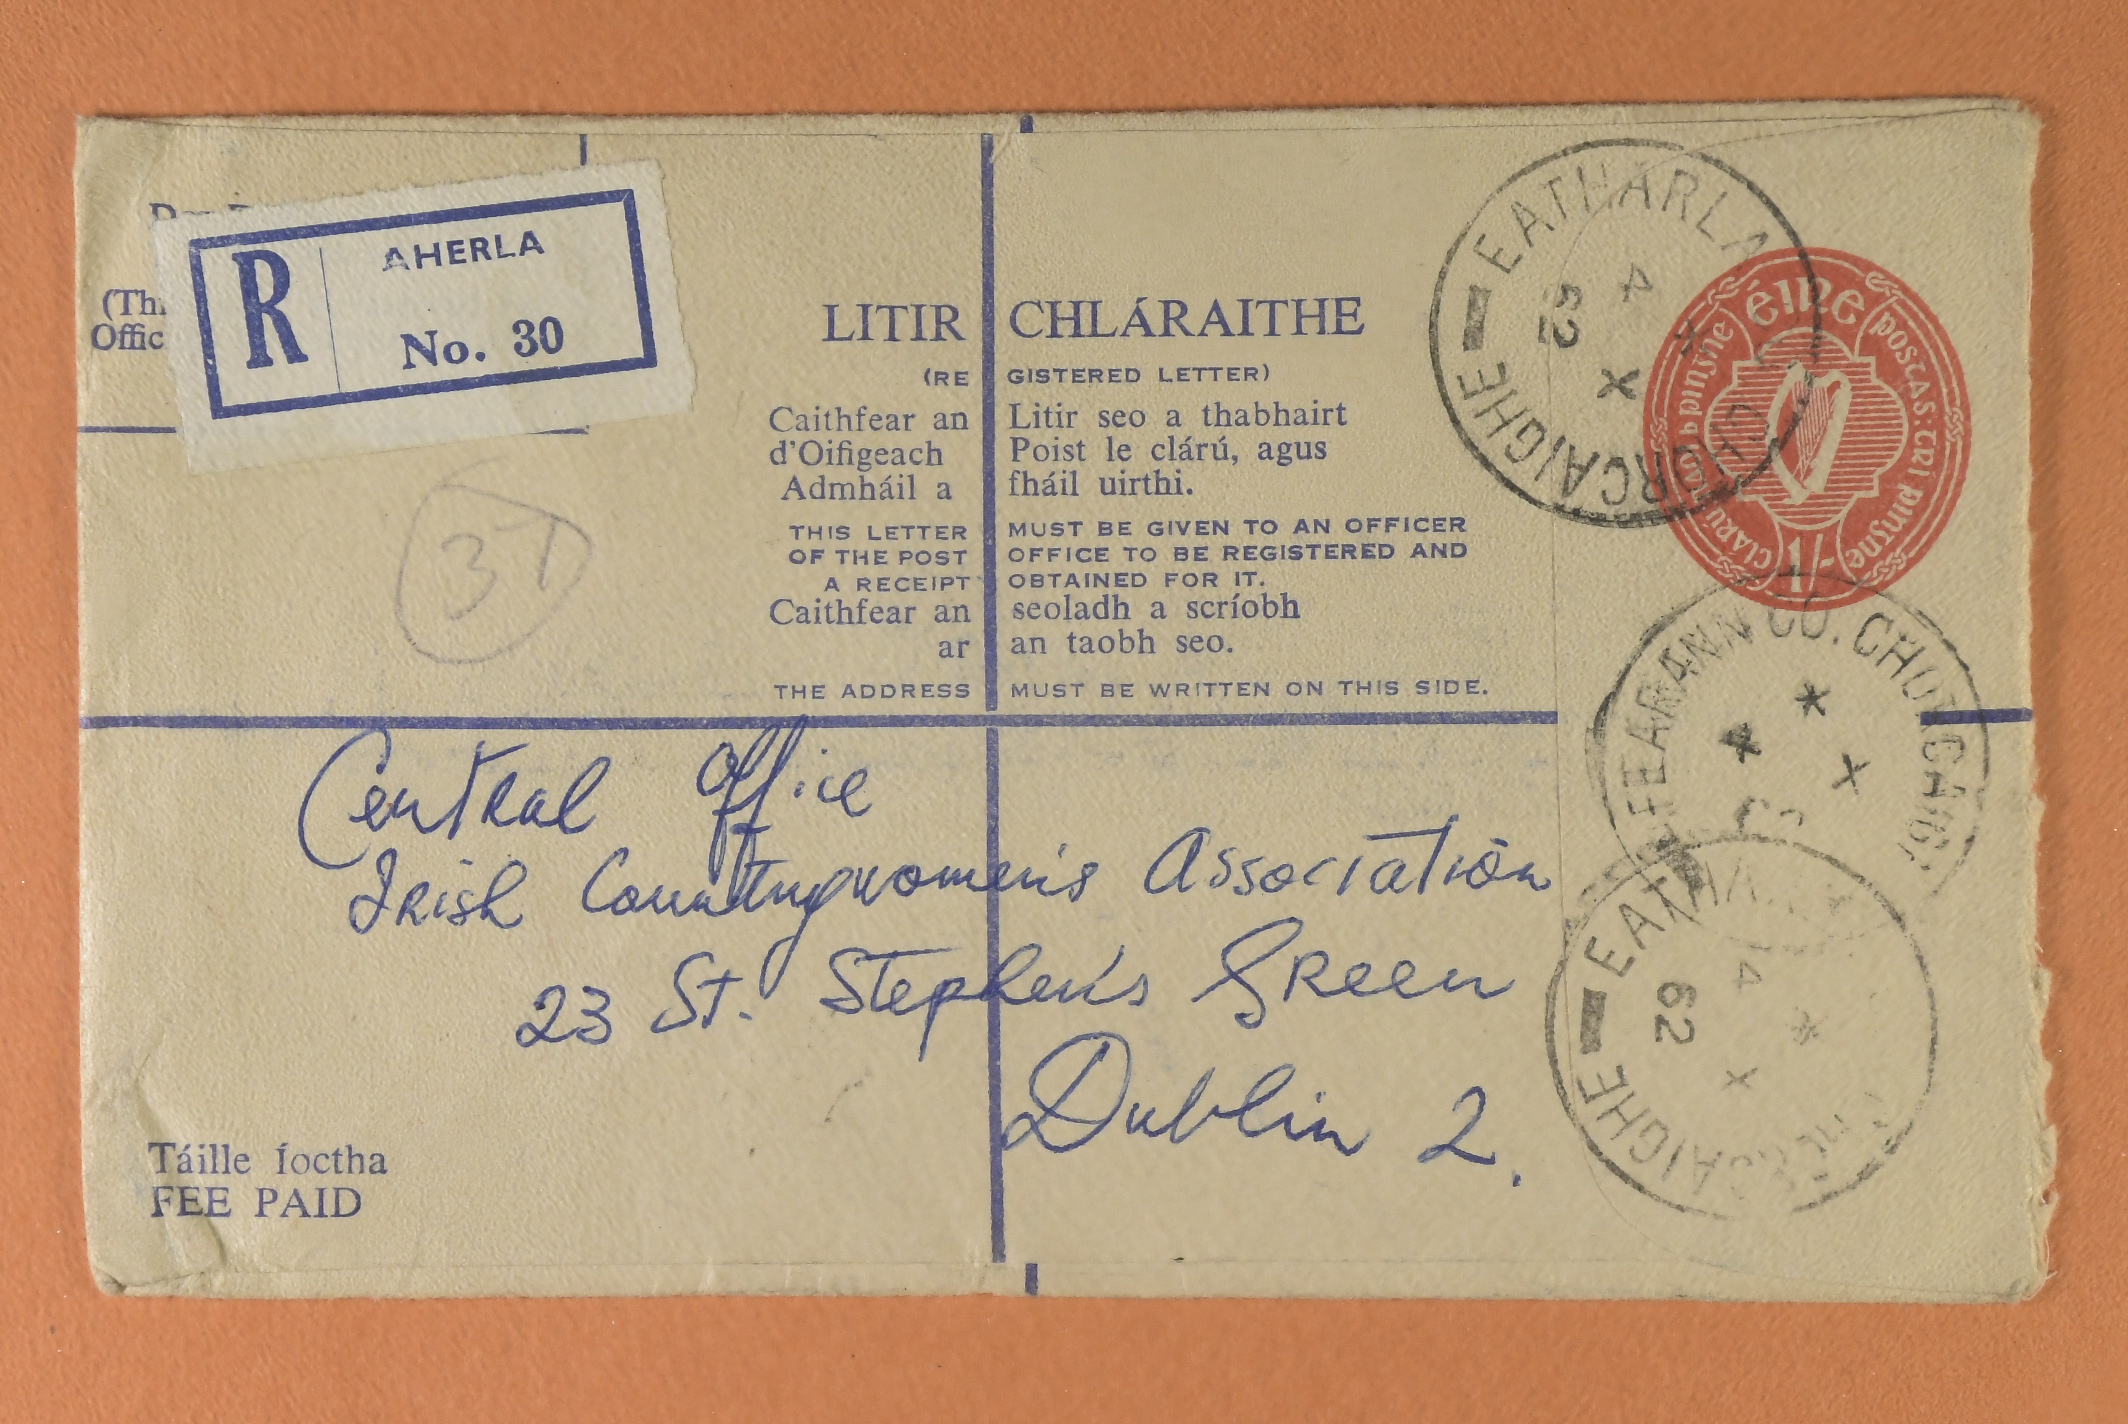 R AHERLA
No. 30
(Thi
Offic
LITIR CHLÁRAITHE
(REGISTERED LETTER)
Caithfear an Litir seo a thabhairt
d'Oifigeach Poist le clárú, agus
Admháil a fháil uirthi.
THIS LETTER MUST BE GIVEN TO AN OFFICER
OF THE POST OFFICE TO BE REGISTERED AND
A RECEIPT OBTAINED FOR IT.
Caithfear an seoladh a scríobh
ar an taobh seo.
THE ADDRESS MUST BE WRITTEN ON THIS SIDE.
EATHARLA
CHORCAIGHE
4
62
X
éire
postas: trí pingne
clárú
1/-
FEARANN CO. CHORCAIGH
EATHA
CAIGHE
4
62
X
Central Office
Irish Countrywomen's Association
23 St. Stephen's Green
Dublin 2.
Táille íoctha
FEE PAID